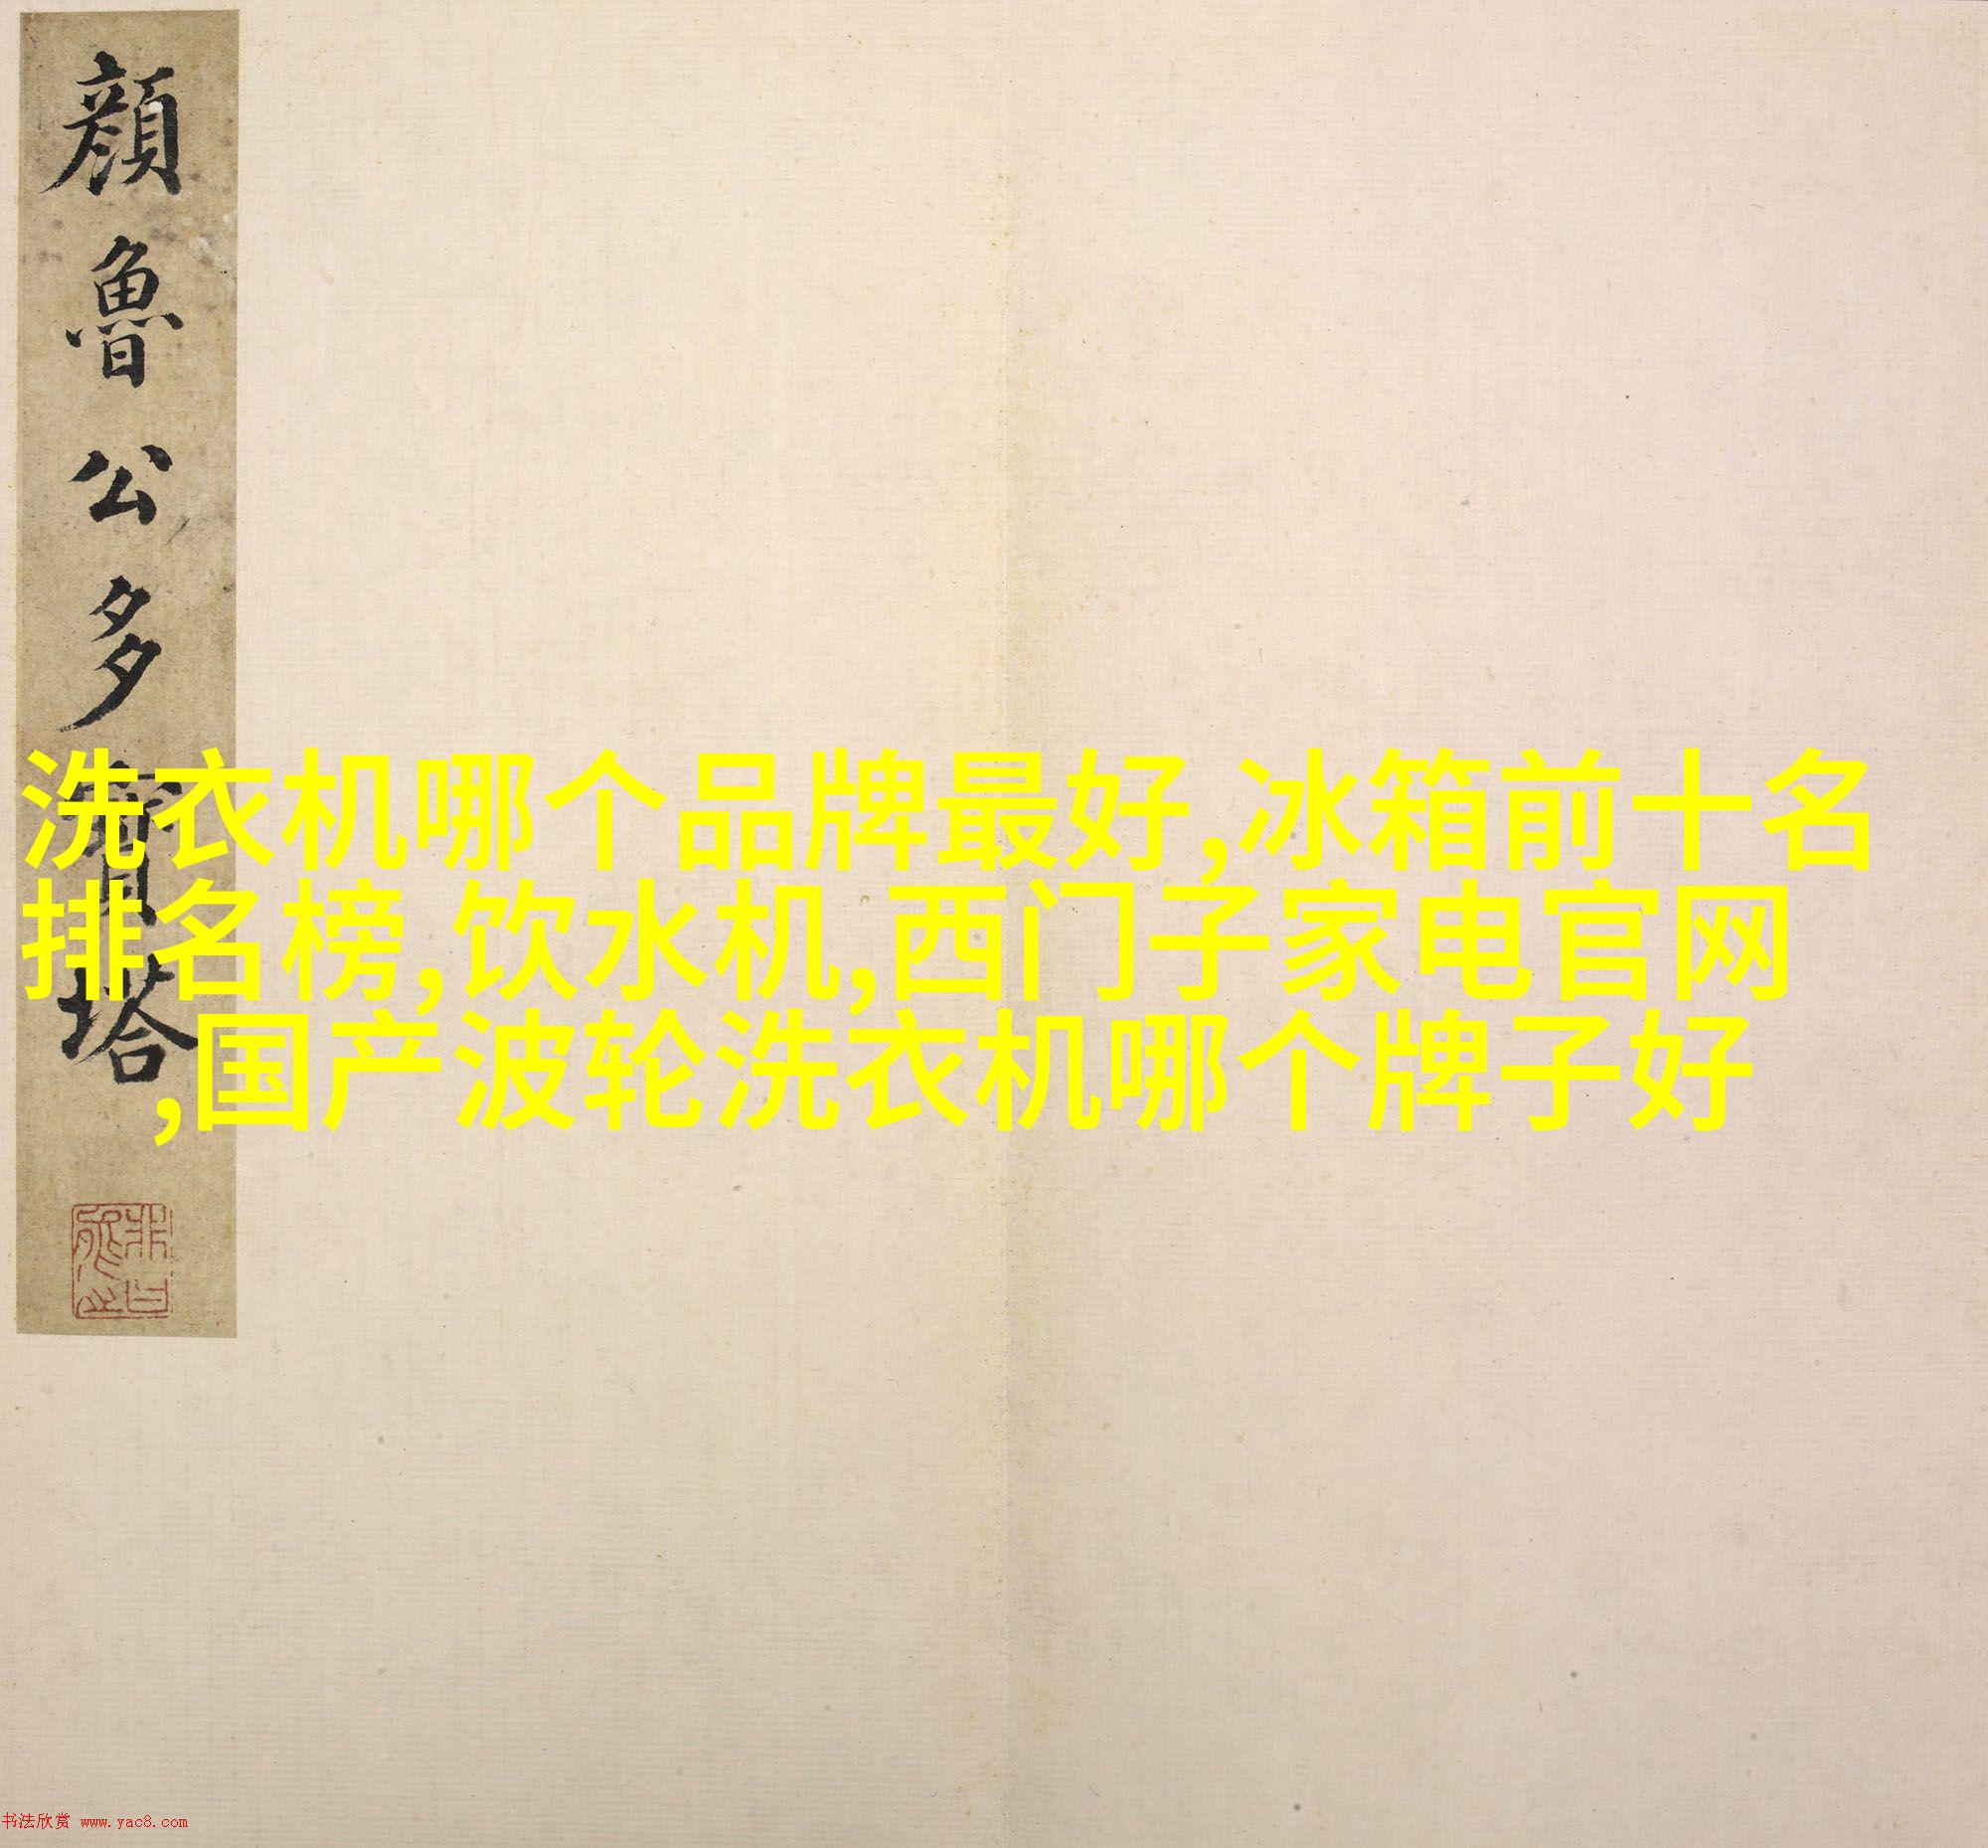 顔魯公多寶塔
洗衣机哪个品牌最好,冰箱前十名
排名榜,饮水机,西门子家电官网
,国产波轮洗衣机哪个牌子好
书法欣赏 www.yac8.com